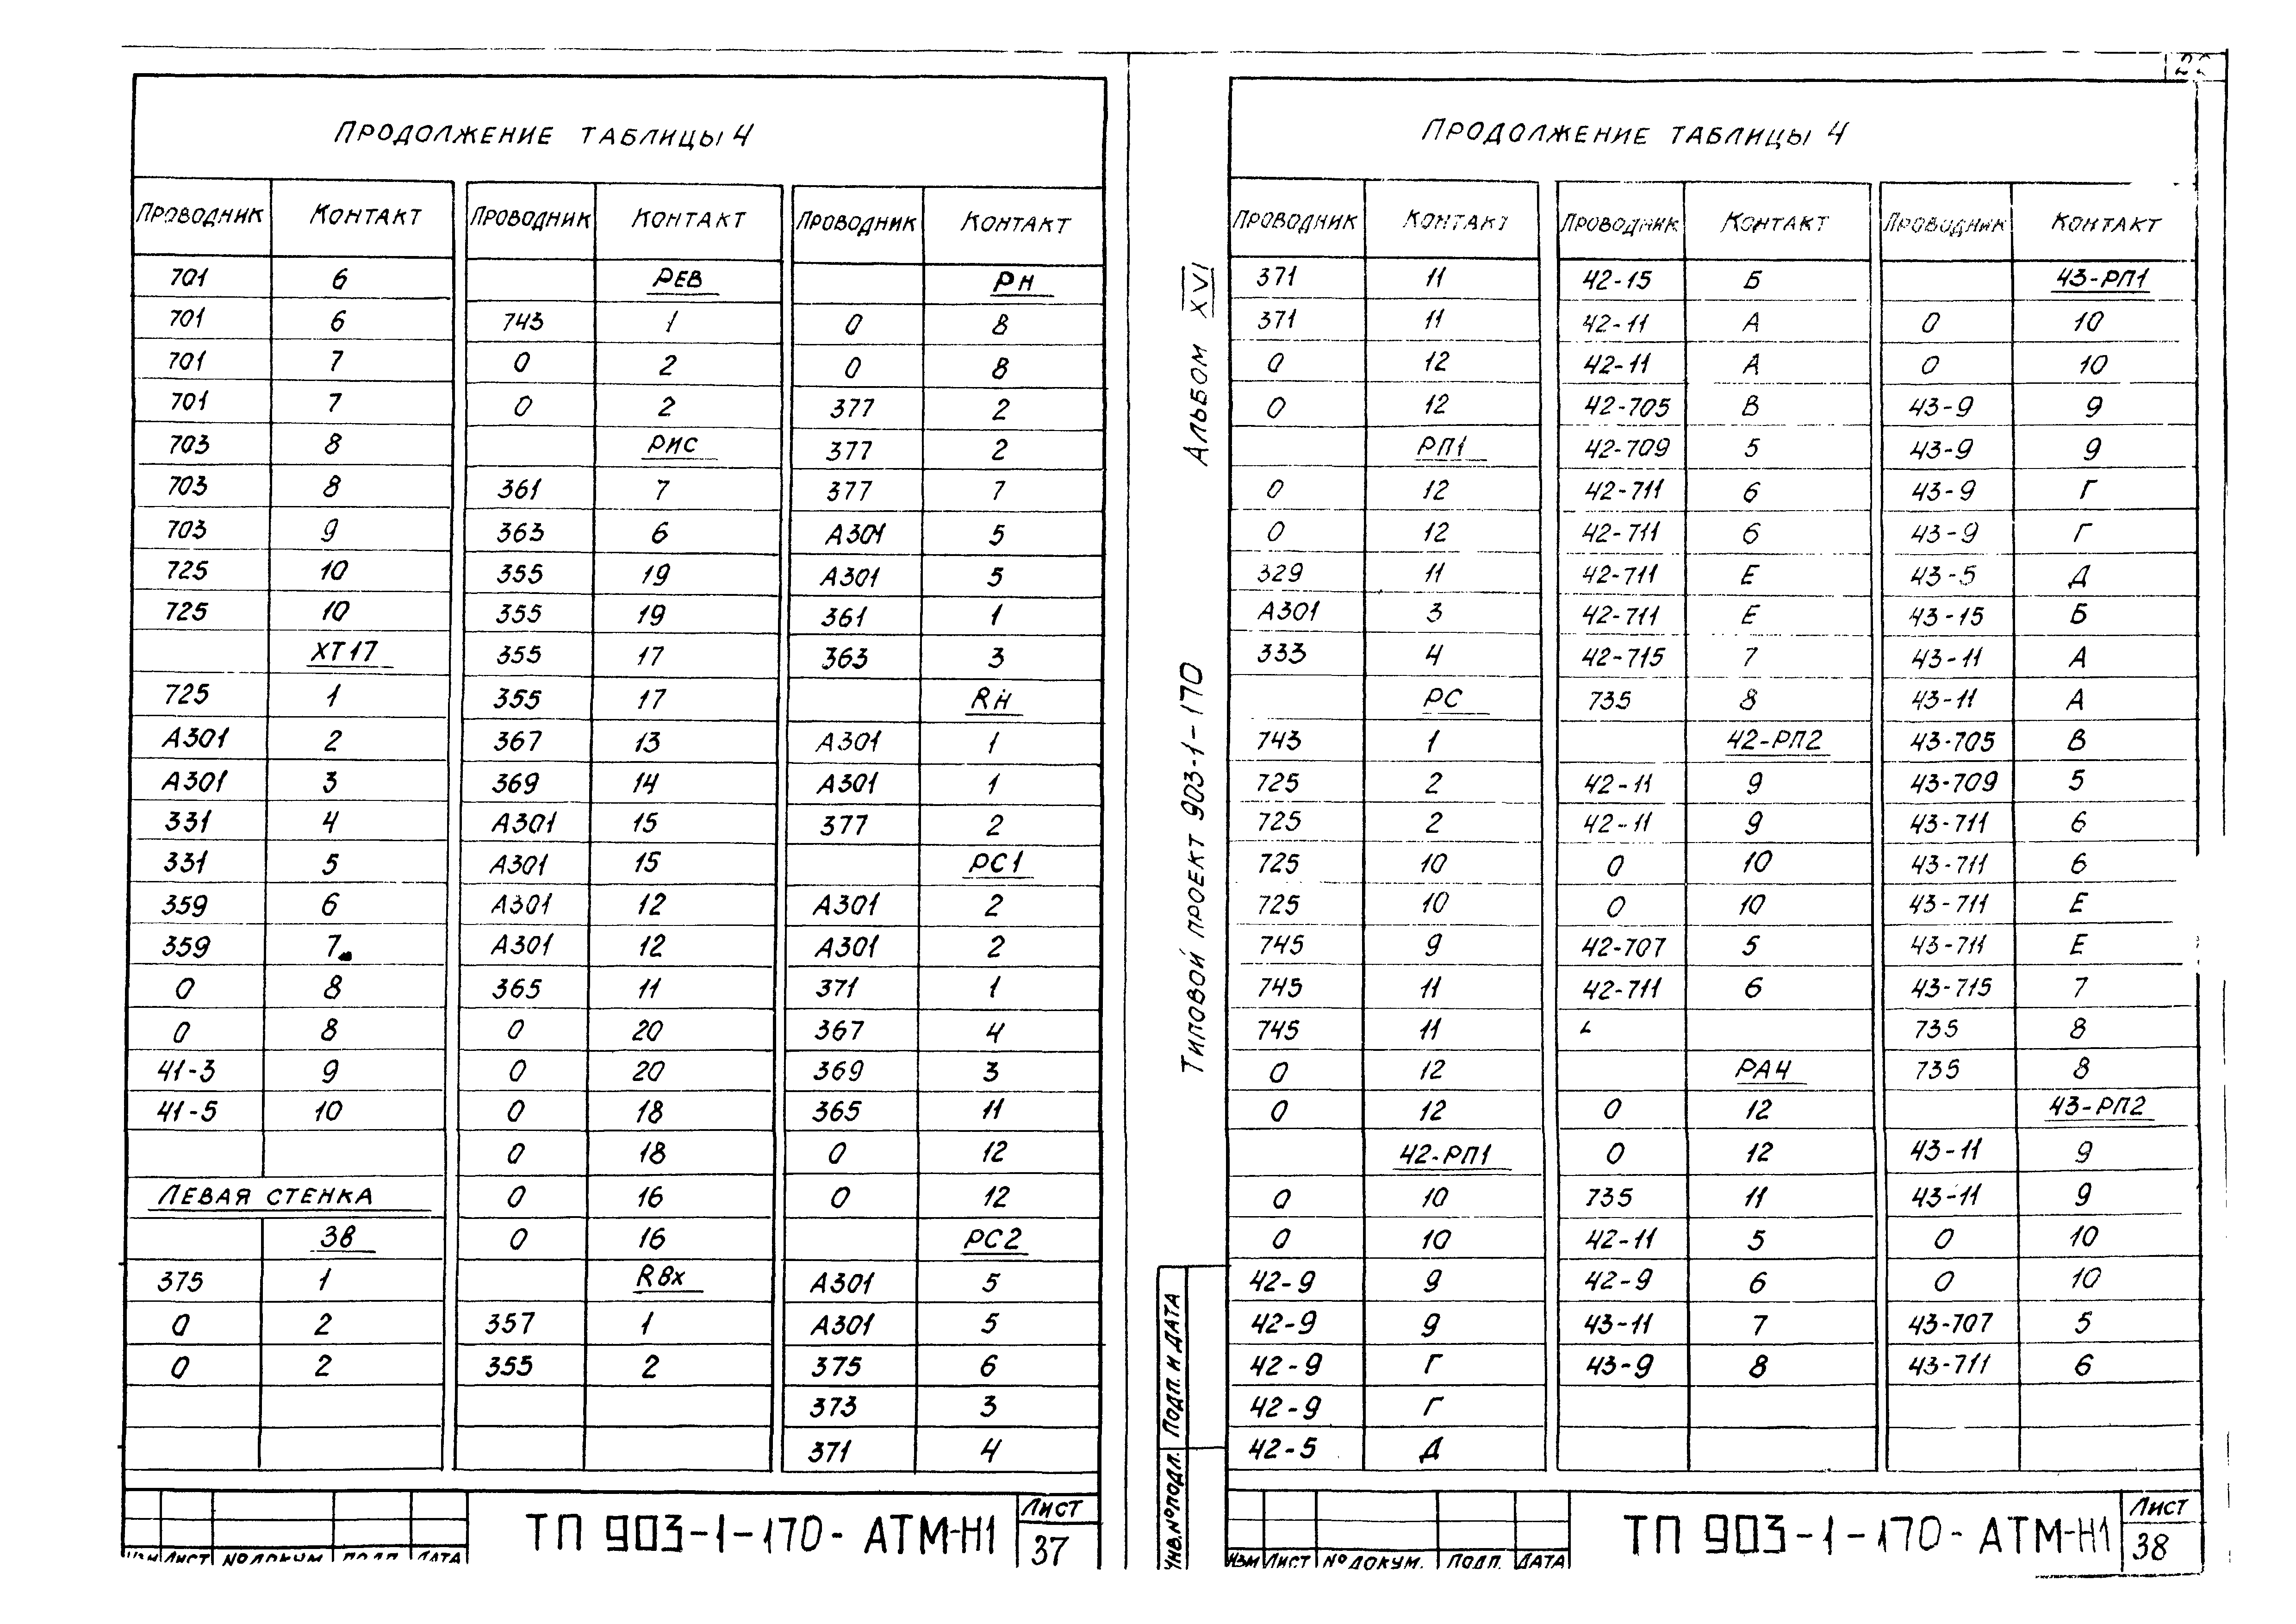 Продолжение таблицы 4
Проводник Контакт Проводник Контакт Проводник Контакт
701 6 РЕВ РН
701 6 743 1 0 8
701 7 0 2 0 8
701 7 0 2 377 2
703 8 РИС 377 2
703 8 361 7 377 7
703 9 363 6 А301 5
725 10 355 19 А301 5
725 10 355 19 361 1
ХТ17 355 17 363 3
725 1 355 17 RН
А301 2 367 13 А301 1
А301 3 369 14 А301 1
331 4 А301 15 377 2
331 5 А301 15 РС1
359 6 А301 12 А301 2
359 7 А301 12 А301 2
0 8 365 11 371 1
0 8 0 20 367 4
41-3 9 0 20 369 3
41-5 10 0 18 365 11
0 18 0 12
Левая стенка 0 16 0 12
ЗВ 0 16 РС2
375 1 Rвх А301 5
0 2 357 1 А301 5
0 2 355 2 375 6
373 3
371 4
Изм Лист № докум. Подп. Дата
ТП 903-1-170- АТМ-Н1
Лист
37
Альбом XVI
Типовой проект 903-1-170
Инв.№подл. Подп. и дата
Продолжение таблицы 4
Проводник Контакт Проводник Контакт Проводник Контакт
371 11 42-15 Б 43-РП1
371 11 42-11 А 0 10
0 12 42-11 А 0 10
0 12 42-705 В 43-9 9
РП1 42-709 5 43-9 9
0 12 42-711 6 43-9 Г
0 12 42-711 6 43-9 Г
329 11 42-711 Е 43-5 Д
А301 3 42-711 Е 43-15 Б
333 4 42-715 7 43-11 А
РС 735 8 43-11 А
743 1 42-РП2 43-705 В
725 2 42-11 9 43-709 5
725 2 42-11 9 43-711 6
725 10 0 10 43-711 6
725 10 0 10 43-711 Е
745 9 42-707 5 43-711 Е
745 11 42-711 6 43-715 7
745 11 735 8
0 12 РА4 735 8
0 12 0 12 43-РП2
42-РП1 0 12 43-11 9
0 10 735 11 43-11 9
0 10 42-11 5 0 10
42-9 9 42-9 6 0 10
42-9 9 43-11 7 43-707 5
42-9 Г 43-9 8 43-711 6
42-9 Г
42-5 Д
Изм Лист № докум. Подп. Дата
ТП 903-1-170- АТМ-Н1
Лист
38